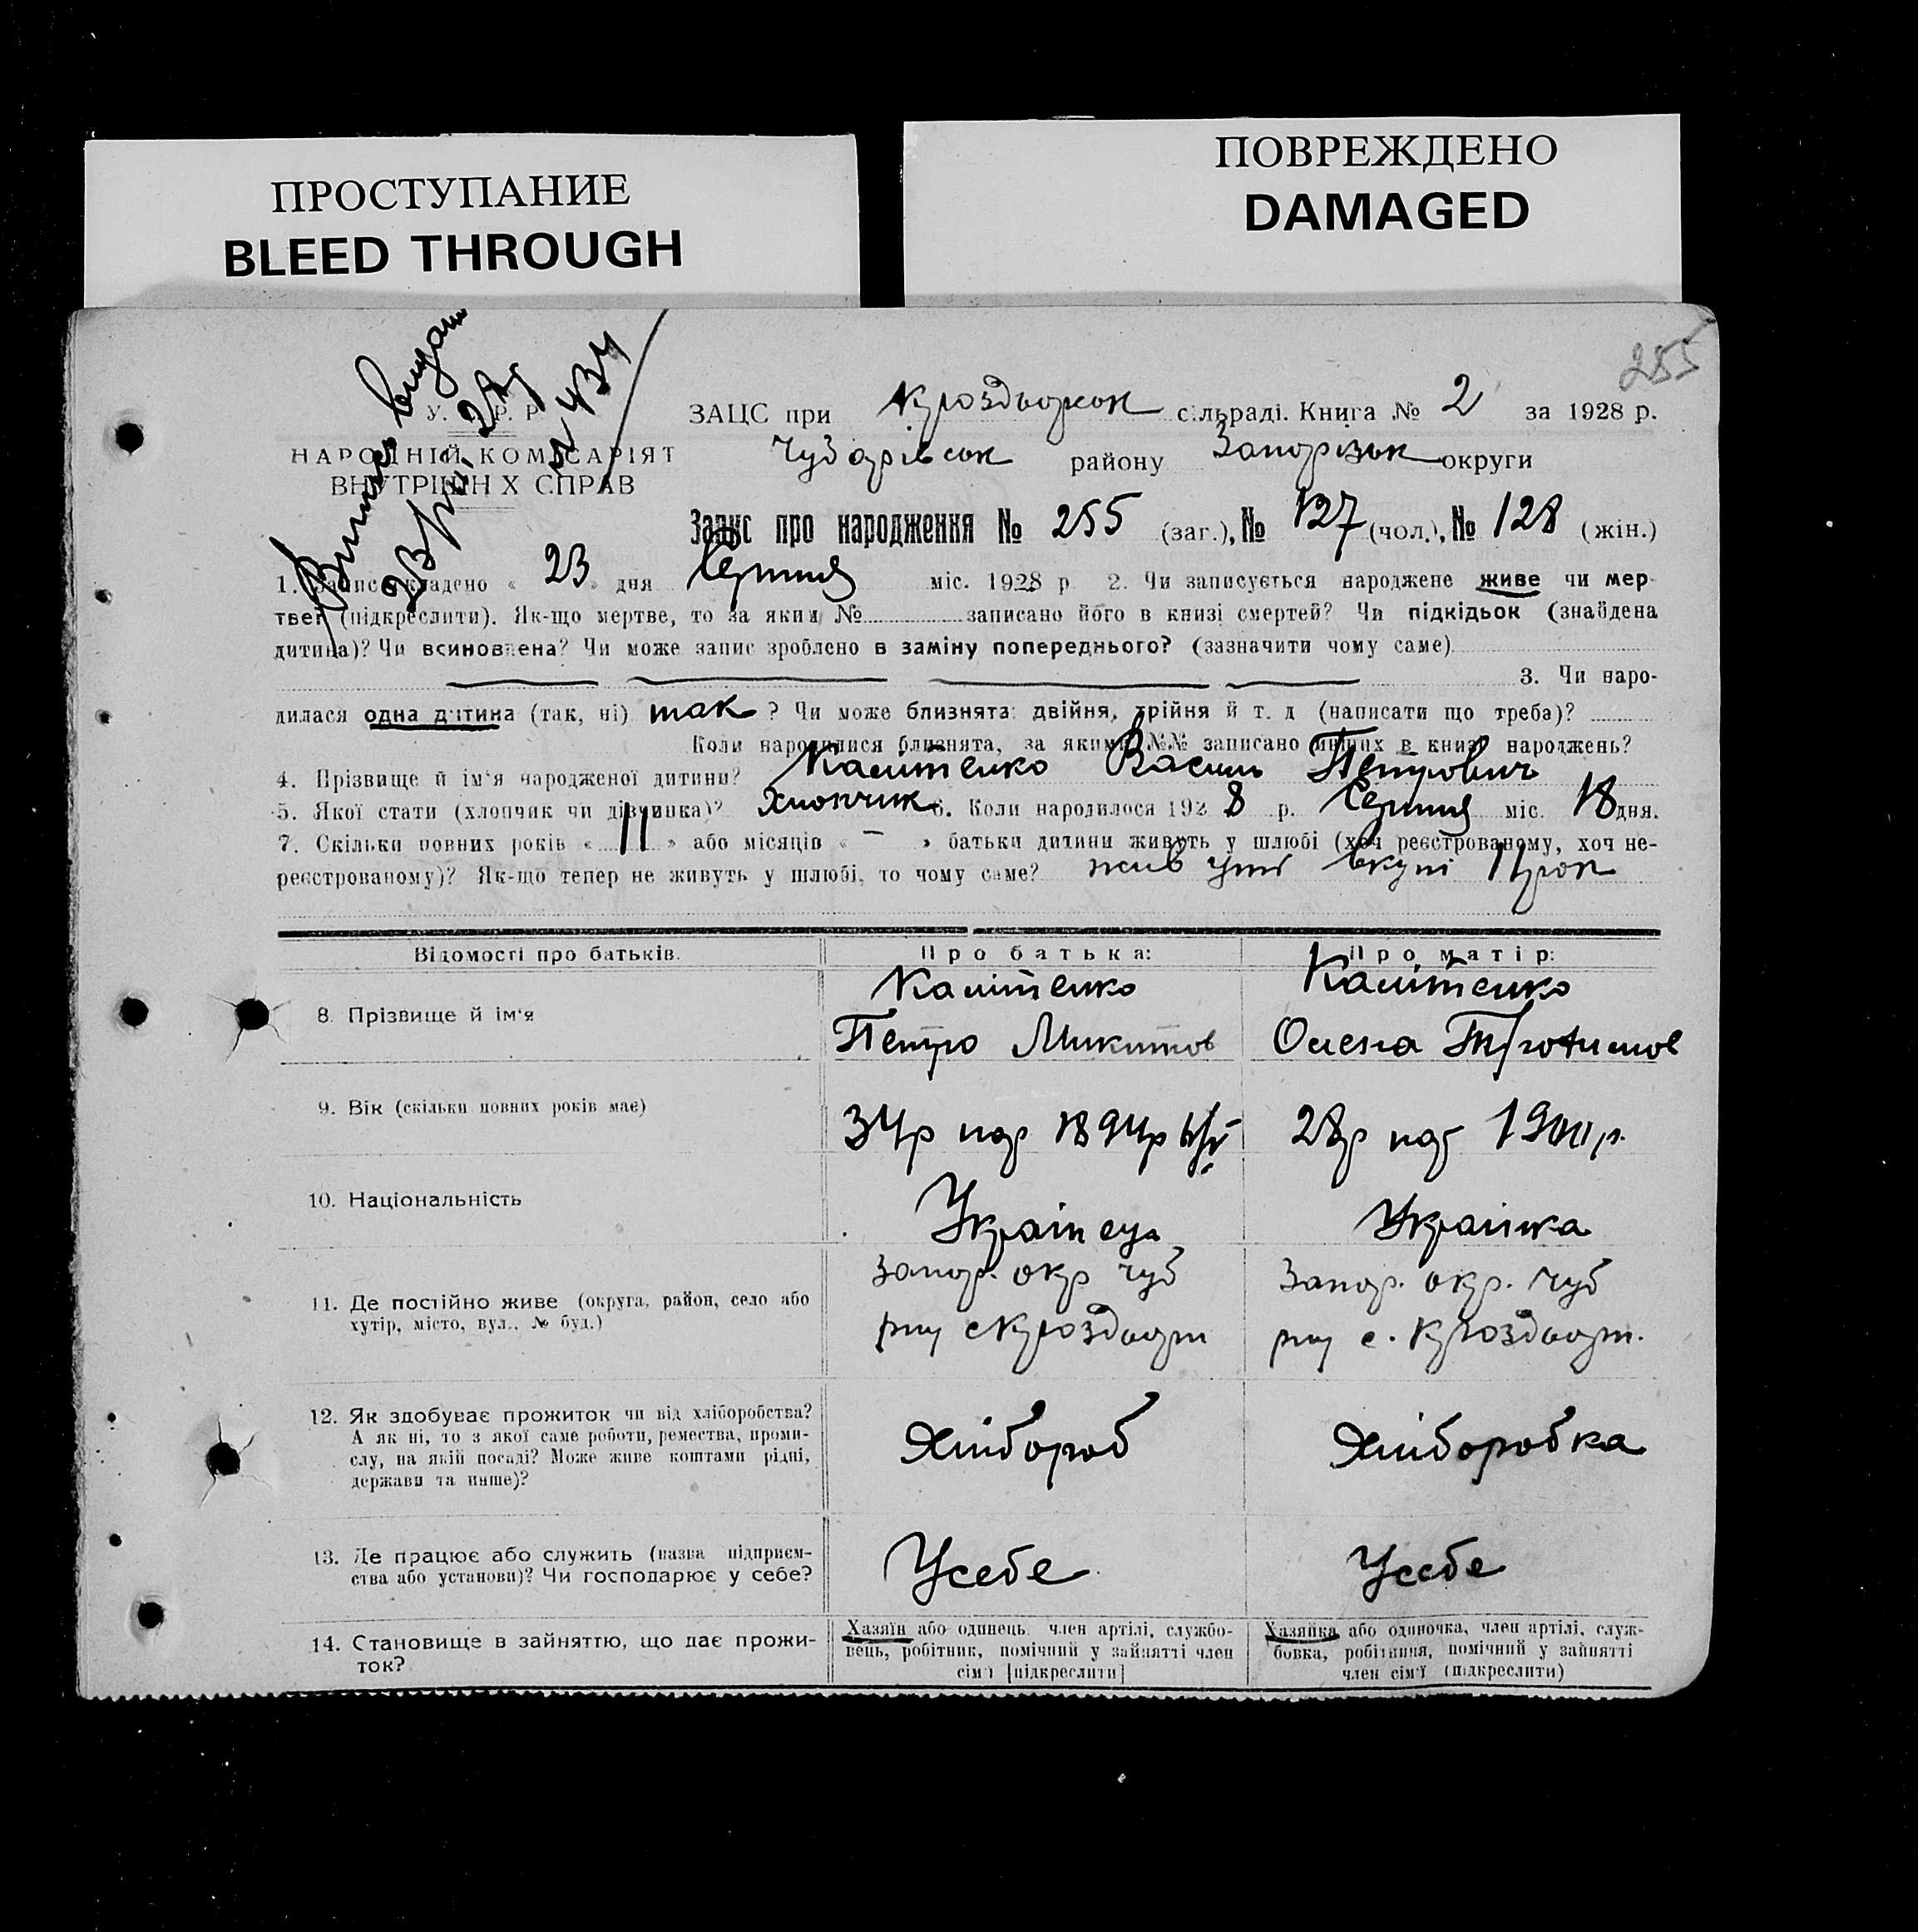 ПРОСТУПАНИЕ
BLEED THROUGH
ПОВРЕЖДЕНО
DAMAGED
255
У. Р. Р.
НАРОДНІЙ КОМІСАРІЯТ
ВНУТРІШНІХ СПРАВ
ЗАЦС при сільраді. Книга № 2 за 1928 р.
Чубарівськ району Запорізьк округи
Запис про народження № 255 (заг.), № 127 (чол.), № 128 (жін.)
1. Запис складено « 23 » дня Серпня міс. 1928 р. 2. Чи записується народжене живе чи мер-
тве (підкреслити). Як-що мертве, то за яким № записано його в книзі смертей? Чи підкідьок (знайдена
дитина)? Чи всиновлена? Чи може запис зроблено в заміну попереднього? (зазначити чому саме)
3. Чи наро-
дилася одна дитина (так, ні) так ? Чи може близнята: двійня, трійня й т. д. (написати що треба)?
Коли народилися близнята, за якими №№ записано инших в книзі народжень?
4. Прізвище й ім'я народженої дитини? Калітенко Василь Петрович
5. Якої стати (хлопчик чи дівчинка)? Хлопчик 6. Коли народилося 1928 р. Серпня міс. 18 дня.
7. Скільки повних років « 11 » або місяців « — » батьки дитини живуть у шлюбі (хоч реєстрованому, хоч не-
реєстрованому)? Як-що тепер не живуть у шлюбі, то чому саме? вкупі 11 рок
Відомості про батьків.
Про батька:
Про матір:
8. Прізвище й ім'я
Калітенко
Петро Микитов
Калітенко
Олена Трофимов
9. Вік (скільки повних років має)
34р нар 1894р
28р нар 1900 р.
10. Національність
Українець
Українка
11. Де постійно живе (округа, район, село або
хутір, місто, вул., № буд.)
Запор. окр Чуб
Запор. окр. Чуб
12. Як здобуває прожиток чи від хліборобства?
А як ні, то з якої саме роботи, ремества, проми-
слу, на якій посаді? Може живе коштами рідні,
держави та инше)?
Хлібороб
Хліборобка
13. Де працює або служить (назва підприєм-
ства або установи)? Чи господарює у себе?
Усебе
Усебе
14. Становище в зайняттю, що дає прожи-
ток?
Хазяїн або одинець, член артілі, службо-
вець, робітник, помічний у зайнятті член
сім'ї [підкреслити]
Хазяйка або одиночка, член артілі, служ-
бовка, робітниця, помічний у зайнятті
член сім'ї (підкреслити)